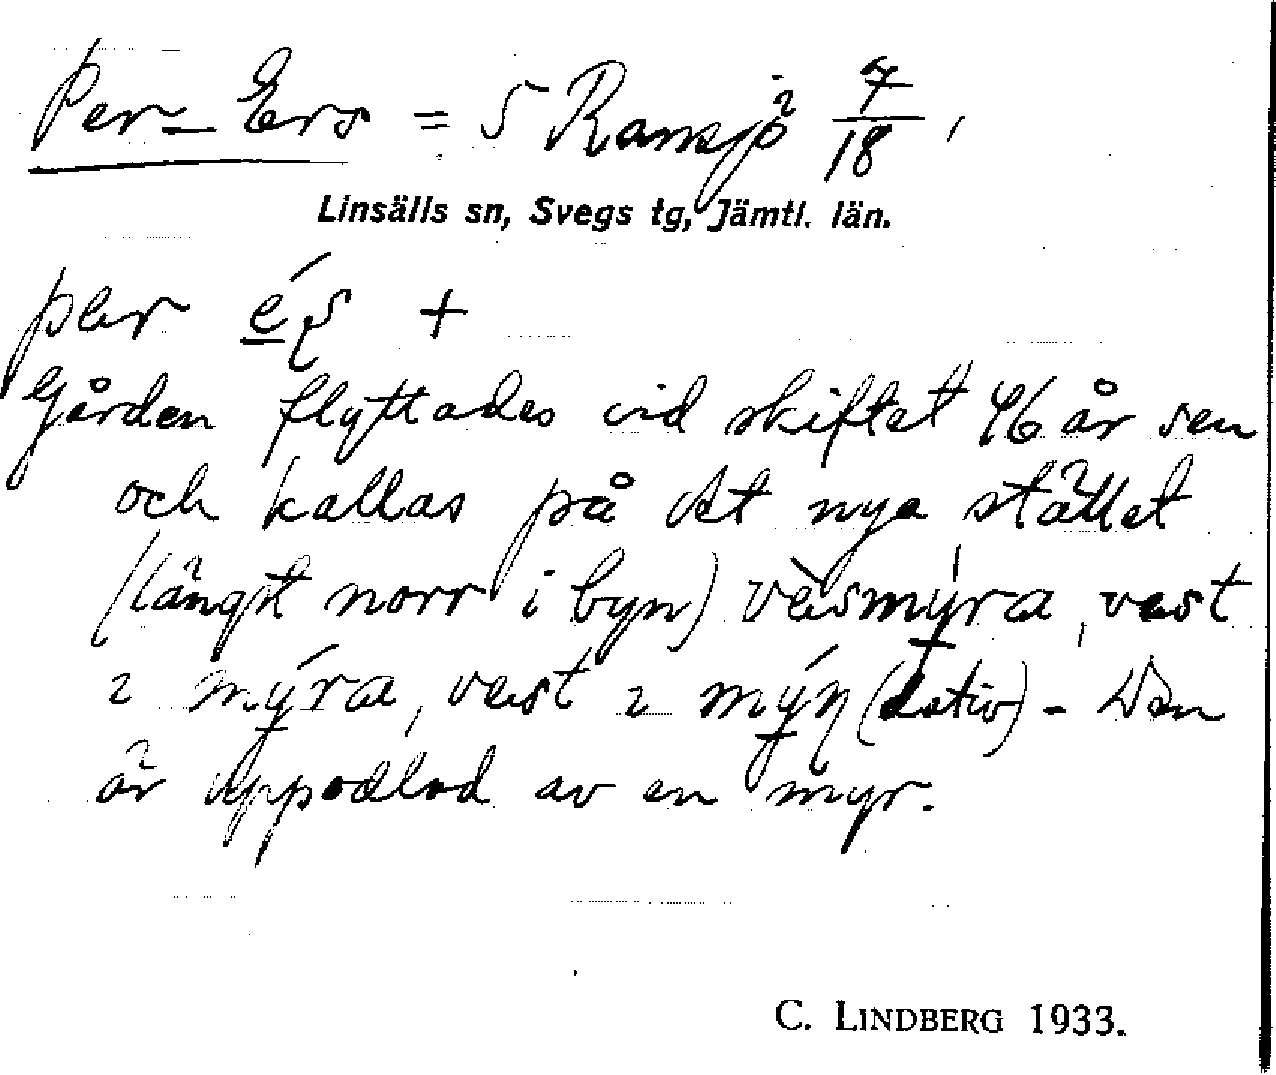 Per-Ers = 5 Ransjö 7/18,
Linsälls sn, Svegs tg, Jämtl. län.
per
+
Gården flyttades vid skiftet 46 år sen
och kallas på det nya stället
(längst norr i byn) väsmýra, vest
i mýra, vest i mýn (dativ) - Den
är uppodlad av en myr.
C. LINDBERG 1933.